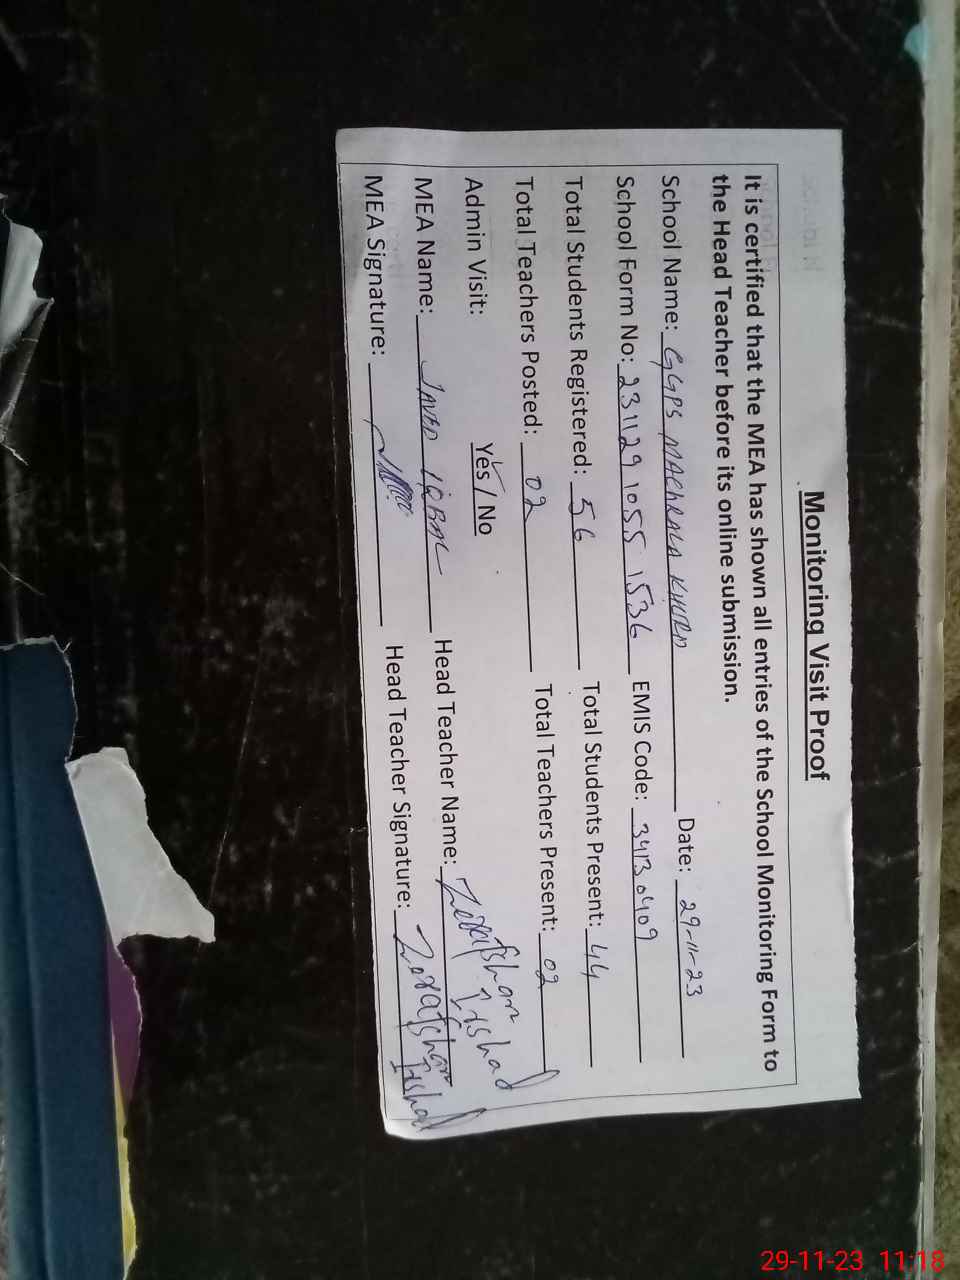 Monitoring Visit Proof
It is certified that the MEA has shown all entries of the School Monitoring Form to
the Head Teacher before its online submission.
School Name: GGPS MACHRALA KHURD Date: 29-11-23
School Form No: 231129 1055 1536 EMIS Code: 34130409
Total Students Registered: 56 Total Students Present: 44
Total Teachers Posted: 02 Total Teachers Present: 02
Admin Visit: Yes / No
MEA Name: JAVED IQBAL Head Teacher Name: Zerafshan Irshad
MEA Signature: Head Teacher Signature: Zerafshan Irshad
29-11-23 11:18